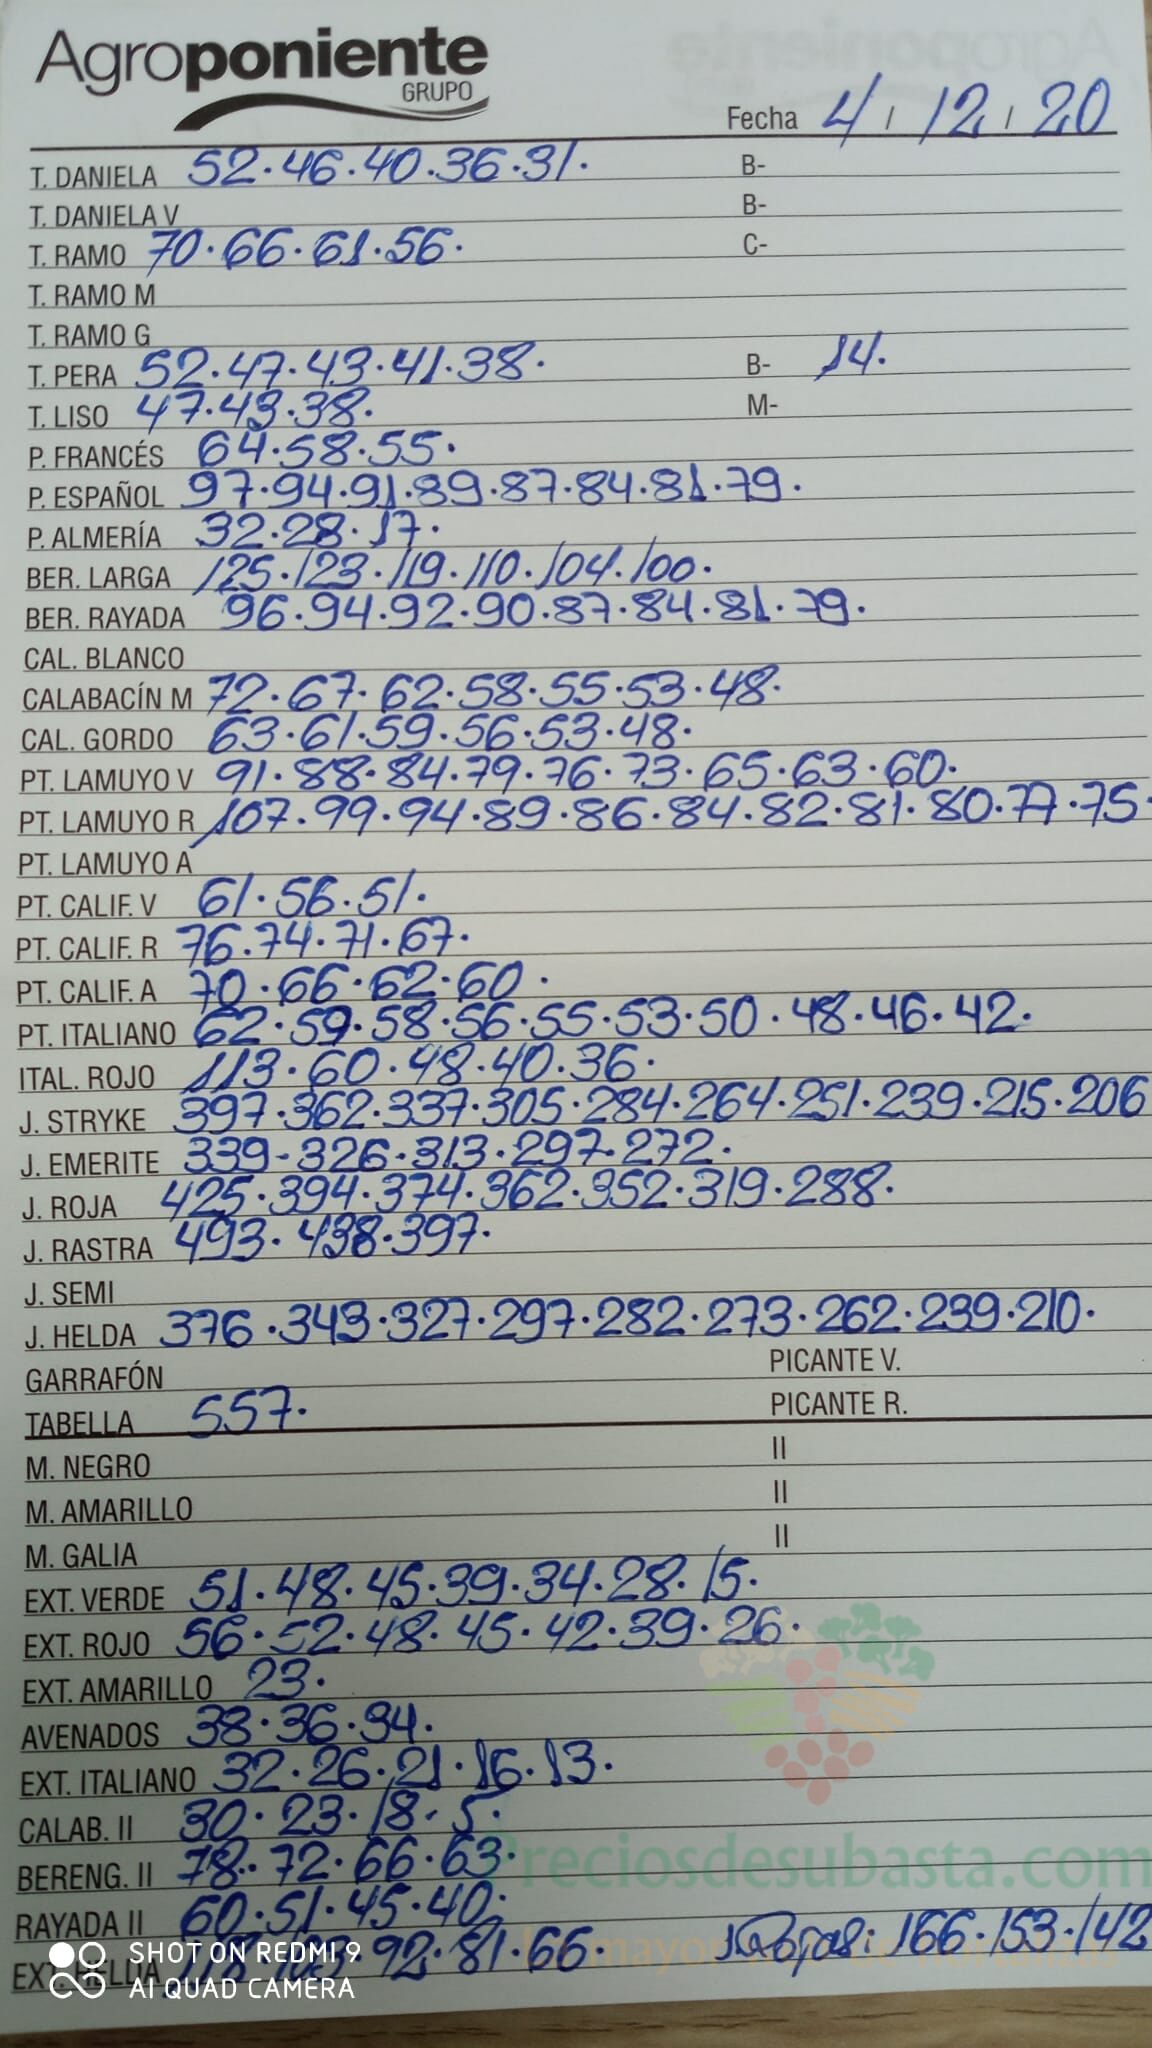 Agroponiente
GRUPO
Fecha 4 / 12 / 20
T. DANIELA 52.46.40.36.31. B-
T. DANIELA V B-
T. RAMO 70.66.61.56. C-
T. RAMO M
T. RAMO G
T. PERA 52.47.43.41.38. B- 14.
T. LISO 47.43.38. M-
P. FRANCÉS 64.58.55.
P. ESPAÑOL 97.94.91.89.87.84.81.79.
P. ALMERÍA 32.28.17.
BER. LARGA 125.123.119.110.104.100.
BER. RAYADA 96.94.92.90.87.84.81.79.
CAL. BLANCO
CALABACÍN M 72.67.62.58.55.53.48.
CAL. GORDO 63.61.59.56.53.48.
PT. LAMUYO V 91.88.84.79.76.73.65.63.60.
PT. LAMUYO R 107.99.94.89.86.84.82.81.80.77.75.
PT. LAMUYO A
PT. CALIF. V 61.56.51.
PT. CALIF. R 76.74.71.67.
PT. CALIF. A 70.66.62.60.
PT. ITALIANO 62.59.58.56.55.53.50.48.46.42.
ITAL. ROJO 113.60.48.40.36.
J. STRYKE 397.362.337.305.284.264.251.239.215.206
J. EMERITE 339-326.313.297.272.
J. ROJA 425.394.374.362.352.319.288.
J. RASTRA 493.438.397.
J. SEMI
J. HELDA 376.343.327.297.282.273.262.239.210.
GARRAFÓN PICANTE V.
TABELLA 557. PICANTE R.
M. NEGRO II
M. AMARILLO II
M. GALIA II
EXT. VERDE 51.48.45.39.34.28.15.
EXT. ROJO 56.52.48.45.42.39.26.
EXT. AMARILLO 23.
AVENADOS 38.36.34.
EXT. ITALIANO 32.26.21.16.13.
CALAB. II 30.23.18.5.
BERENG. II 78.72.66.63.
Preciosdesubasta.com
RAYADA II 60.51.45.40.
EXT. HELDA 92.81.66. 166.153.142
SHOT ON REDMI 9
AI QUAD CAMERA